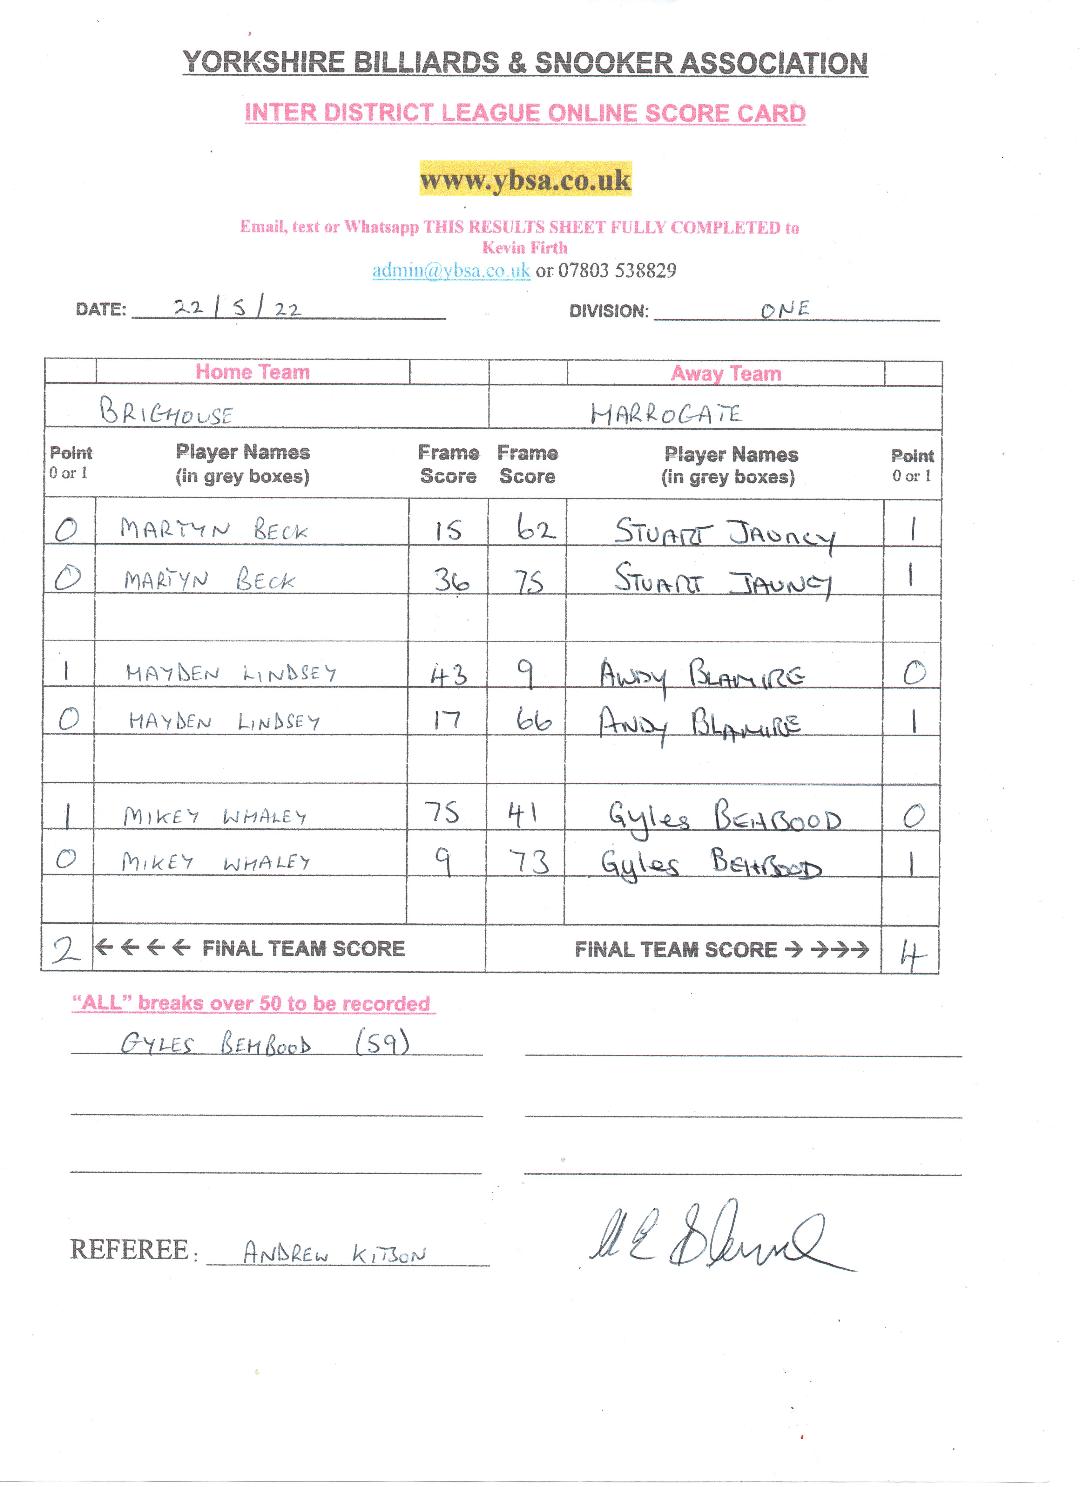 YORKSHIRE BILLIARDS & SNOOKER ASSOCIATION
INTER DISTRICT LEAGUE ONLINE SCORE CARD
www.ybsa.co.uk
Email, text or Whatsapp THIS RESULTS SHEET FULLY COMPLETED to
Kevin Firth
admin@ybsa.co.uk or 07803 538829
DATE: 22/5/22 DIVISION: ONE
Home Team Away Team
BRIGHOUSE HARROGATE
Point Player Names Frame Frame Player Names Point
0 or 1 (in grey boxes) Score Score (in grey boxes) 0 or 1
0 MARTYN BECK 15 62 STUART JAUNCY 1
0 MARTYN BECK 36 75 STUART JAUNCY 1
1 HAYDEN LINDSEY 43 9 ANDY BLAMIRE 0
0 HAYDEN LINDSEY 17 66 ANDY BLAMIRE 1
1 MIKEY WHALEY 75 41 Gyles BEHBOOD 0
0 MIKEY WHALEY 9 73 Gyles BEHBOOD 1
2 ← ← ← ← FINAL TEAM SCORE FINAL TEAM SCORE → →→→ 4
"ALL" breaks over 50 to be recorded
GYLES BEHBOOD (59)
REFEREE: ANDREW KITSON